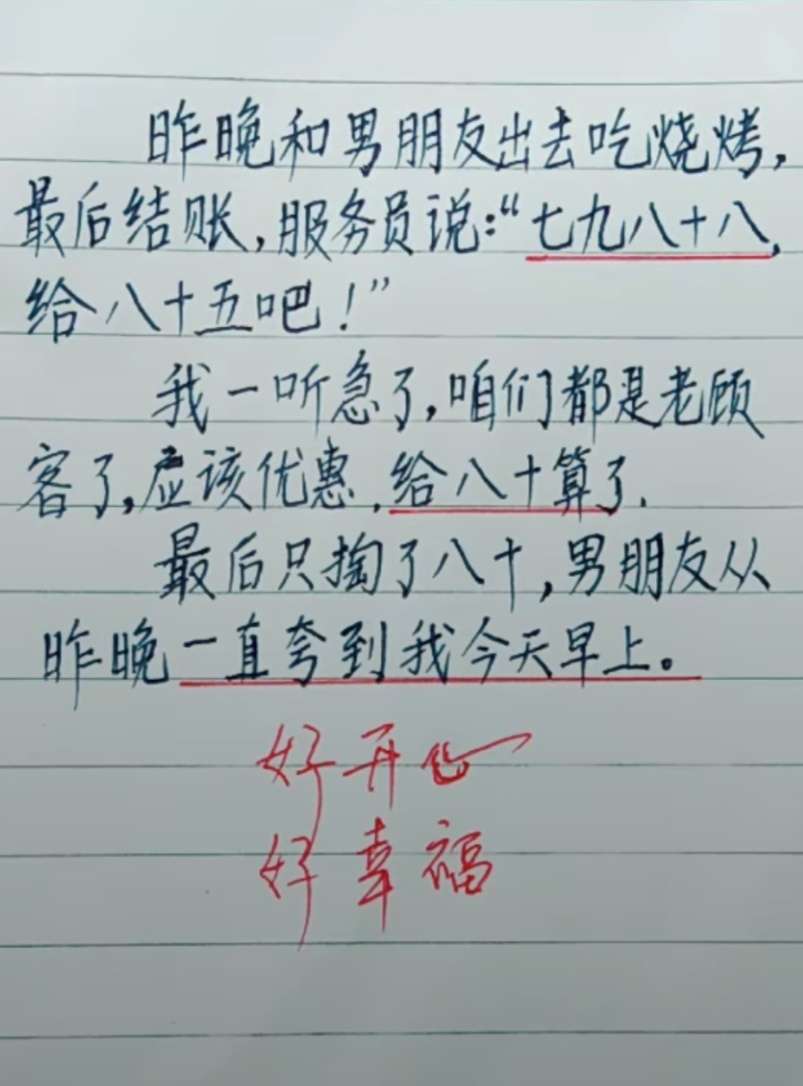 昨晚和男朋友出去吃烧烤,
最后结账,服务员说:“七九八十八,
给八十五吧!”
我一听急了,咱们都是老顾
客了,应该优惠,给八十算了.
最后只掏了八十,男朋友从
昨晚一直夸到我今天早上。
好开心
好幸福